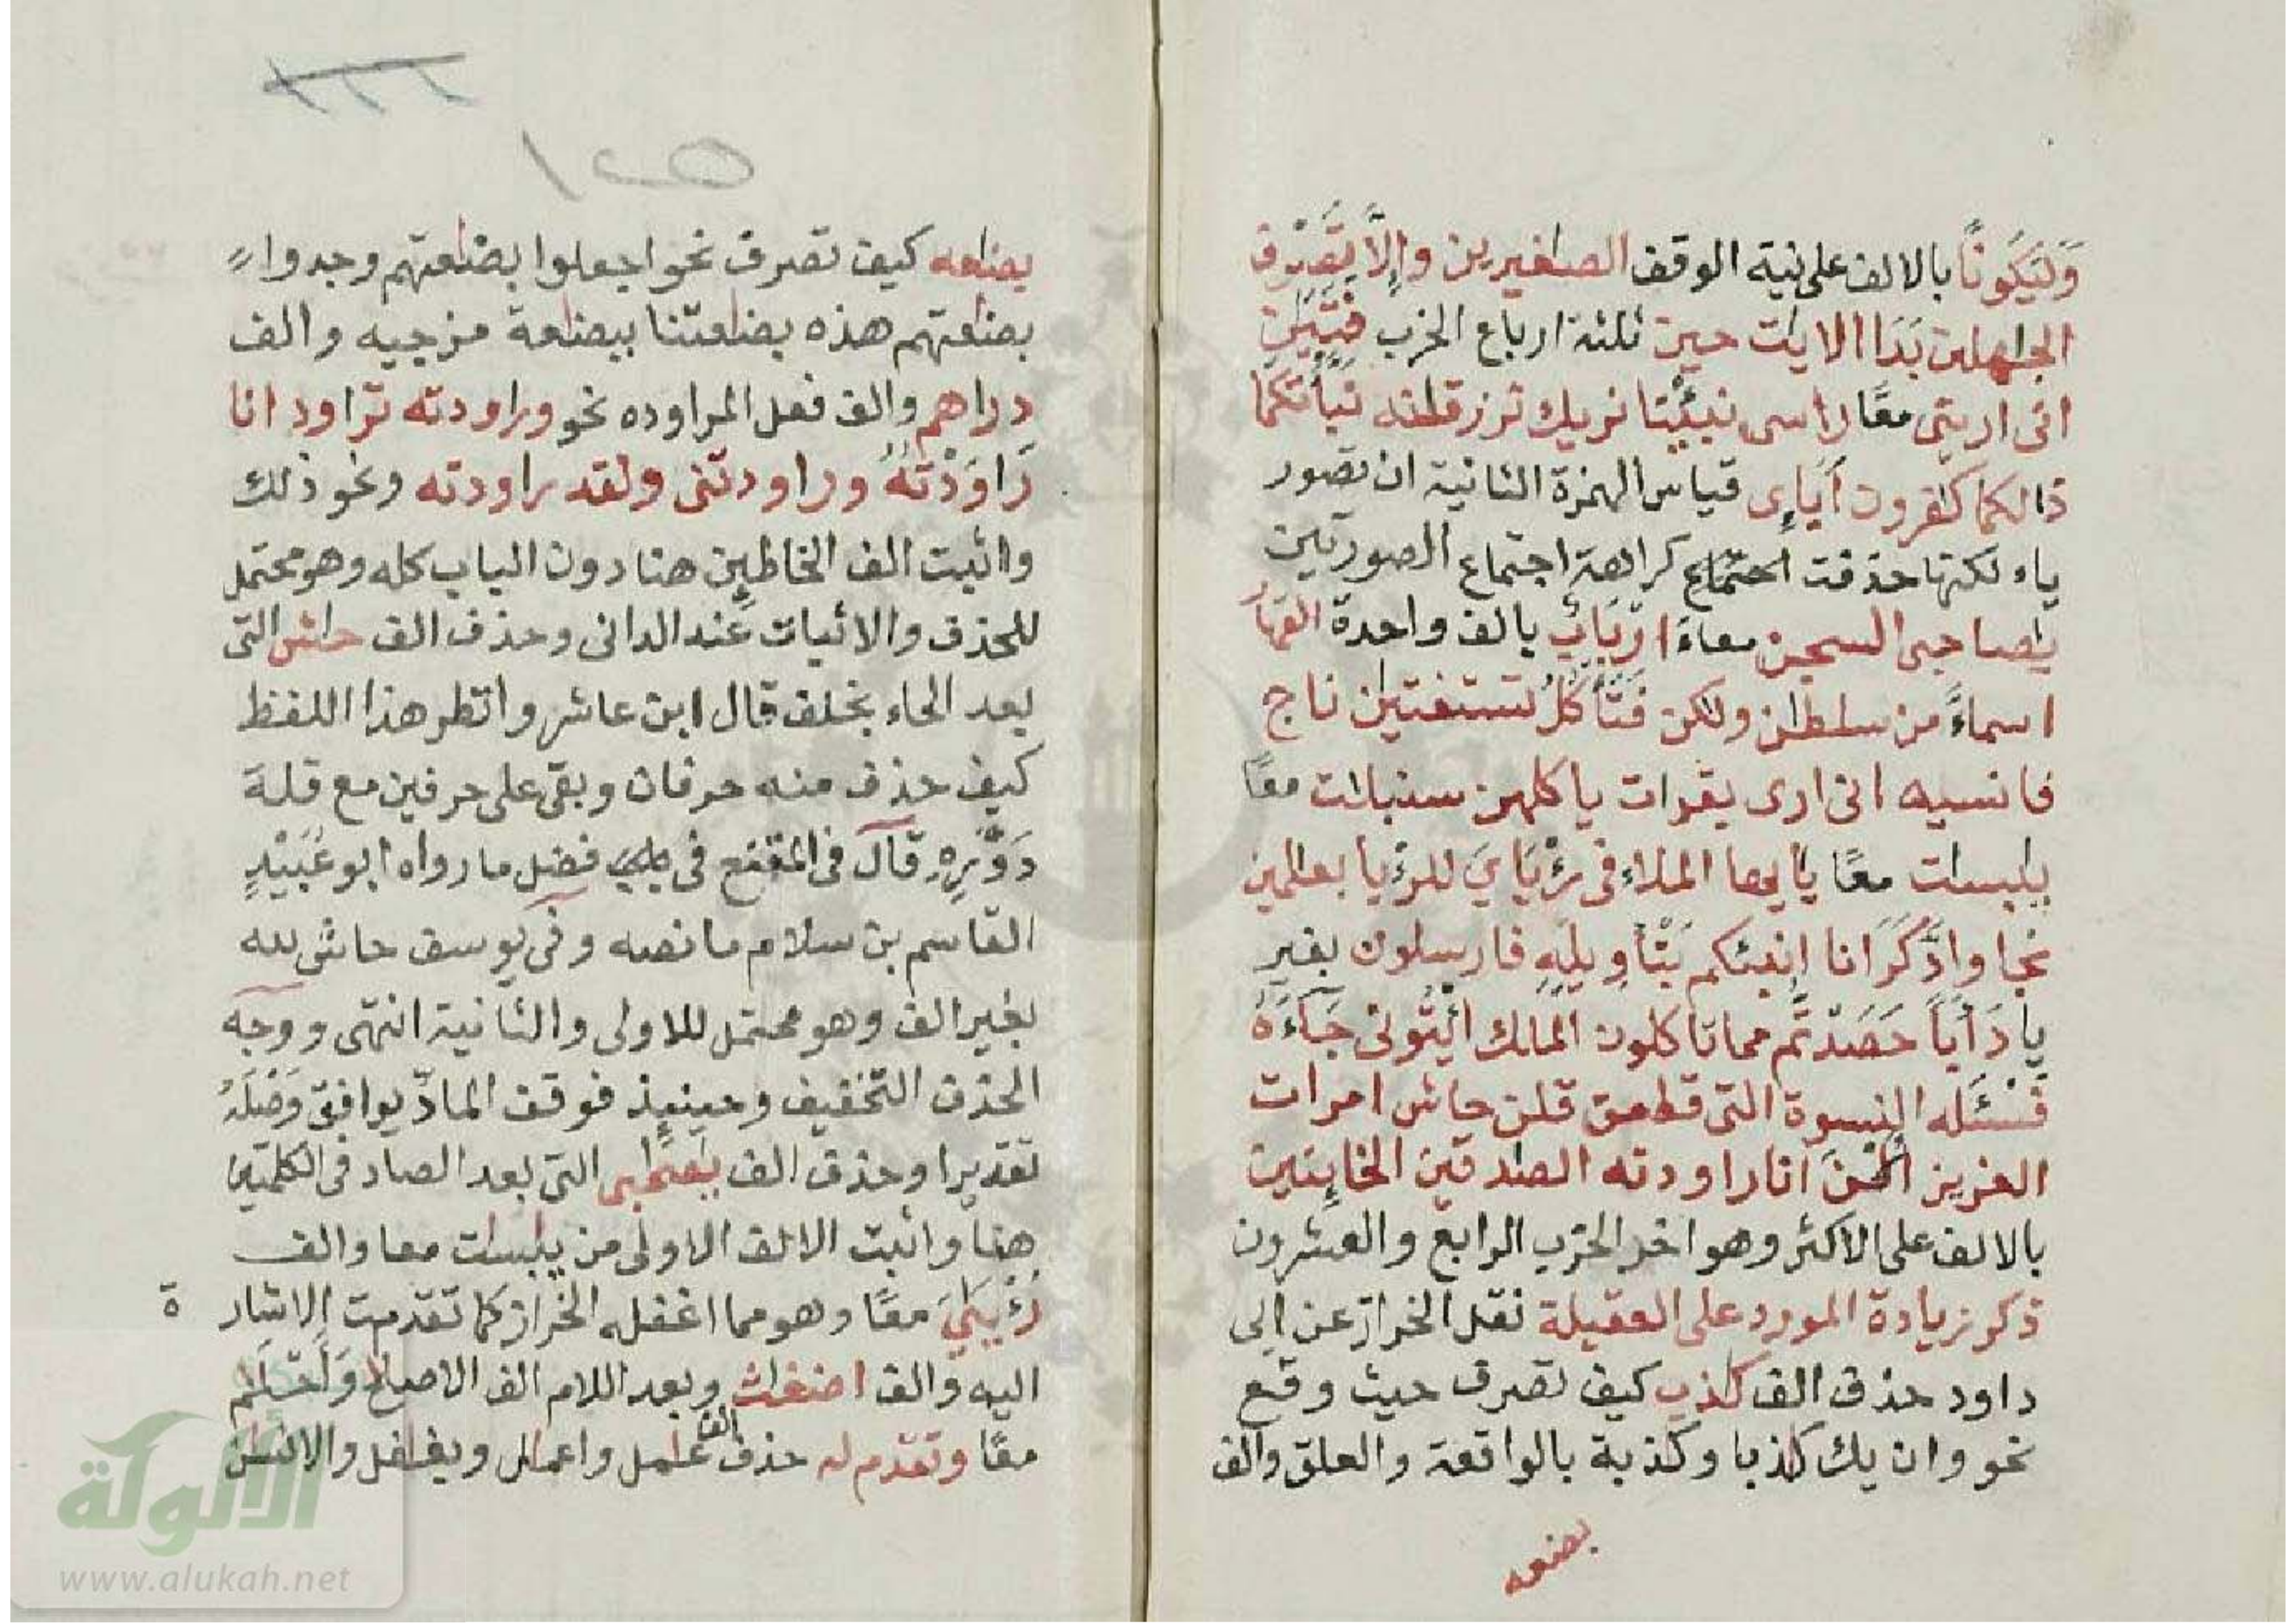 وَلَيَكُونًا بالالف على نية الوقف الصٰغيرين وإلَّا تَصْرِف
الجٰهلين بَدَا الايٰت حين ثلثة ارباع الحزب فَتَيَٰنِ
انى اريٰنى معًا رأسى نبئنا نريك ترزقٰنه نبأتكما
ذٰلكما كٰفرون أٰبَاءِى قياس الهمزة الثانية ان تصور
ياء لكنها حذفت كراهة اجتماع الصورتين
يٰصاحبى السجن معا ءَارْبَابٌ بالف واحدة القهٰرُ
اسماءً من سلطٰن ولٰكن فَتَأْكُلُ تستفتيٰن ناج
فانسيه انى ارى بقرات ياكلهن سنبلٰت معًا
يٰبسٰت معًا يٰأيها الملاء فى رُءْيَايَ للرءيا بعٰلمين
نجا وادَّكَرَ انا انبئكم بَتْأوِيلِهِ فارسلون بغير
يا دَأَبًا حَصَدتُّم مما تاكلون المَلِك ائْتُونى جَآءَهُ
فَسْئَلْه النسوة التى قطعن قلن حاش امرات
العزيز الْـٰٔنَ انا راودته الصٰدقين الخاينين
بالالف على الاكثر وهو اخر الحزب الرابع والعشرون
ذكر زيادة المورد على العقيلة نقل الخراز عن ابى
داود حذف الف كٰذب كيف تصرف حيث وقع
نحو وان يك كٰذبا وكٰذبة بالواقعة والعلق والف
بضٰعه
بضٰعه كيف تصرف نحو اجعلوا بضٰعتهم وجدوا
بضٰعتهم هذه بضٰعتنا ببضٰعة مزجيه والف
درٰاهم والف فعل المراوده نحو ورٰاودته ترٰاود انا
رَٰاوَدْتُّهُ ورٰاودتنى ولقد رٰاودته ونحو ذلك
واثبت الف الخاطِين هنا دون الباب كله وهو محتمل
للحذف والاثبات عند الدانى وحذف الف حٰاش التى
بعد الحاء بخلف قال ابن عاشر وانظر هذا اللفظ
كيف حذف منه حرفان وبقى على حرفين مع قلة
دَوْرِهِ قال فى المقنع فى فصل ما رواه ابو عُبَيْدٍ
القاسم بن سلام ما نصه وفى يوسف حاش لله
بغير الف وهو محتمل للاولى والثانية انتهى ووجه
الحذف التخفيف وحينيذ فوقف المادّ يوافق وَصْلَهُ
تقديرا وحذف الف يٰصٰحبى التى بعد الصاد فى الكلمتين
هنا واثبت الالف الاولى من يٰبسٰت معا والف
رُءْيَٰيَ معًا وهو مما اغفله الخراز كما تقدمت الاشار ة
اليه والف اضغٰث وبعد اللام الف الاصلاح وَأَحْلَٰم
معًا وتقدم له حذف الف عٰمل واعمٰل وبغٰفل والانسٰن
الألوكة
www.alukah.net